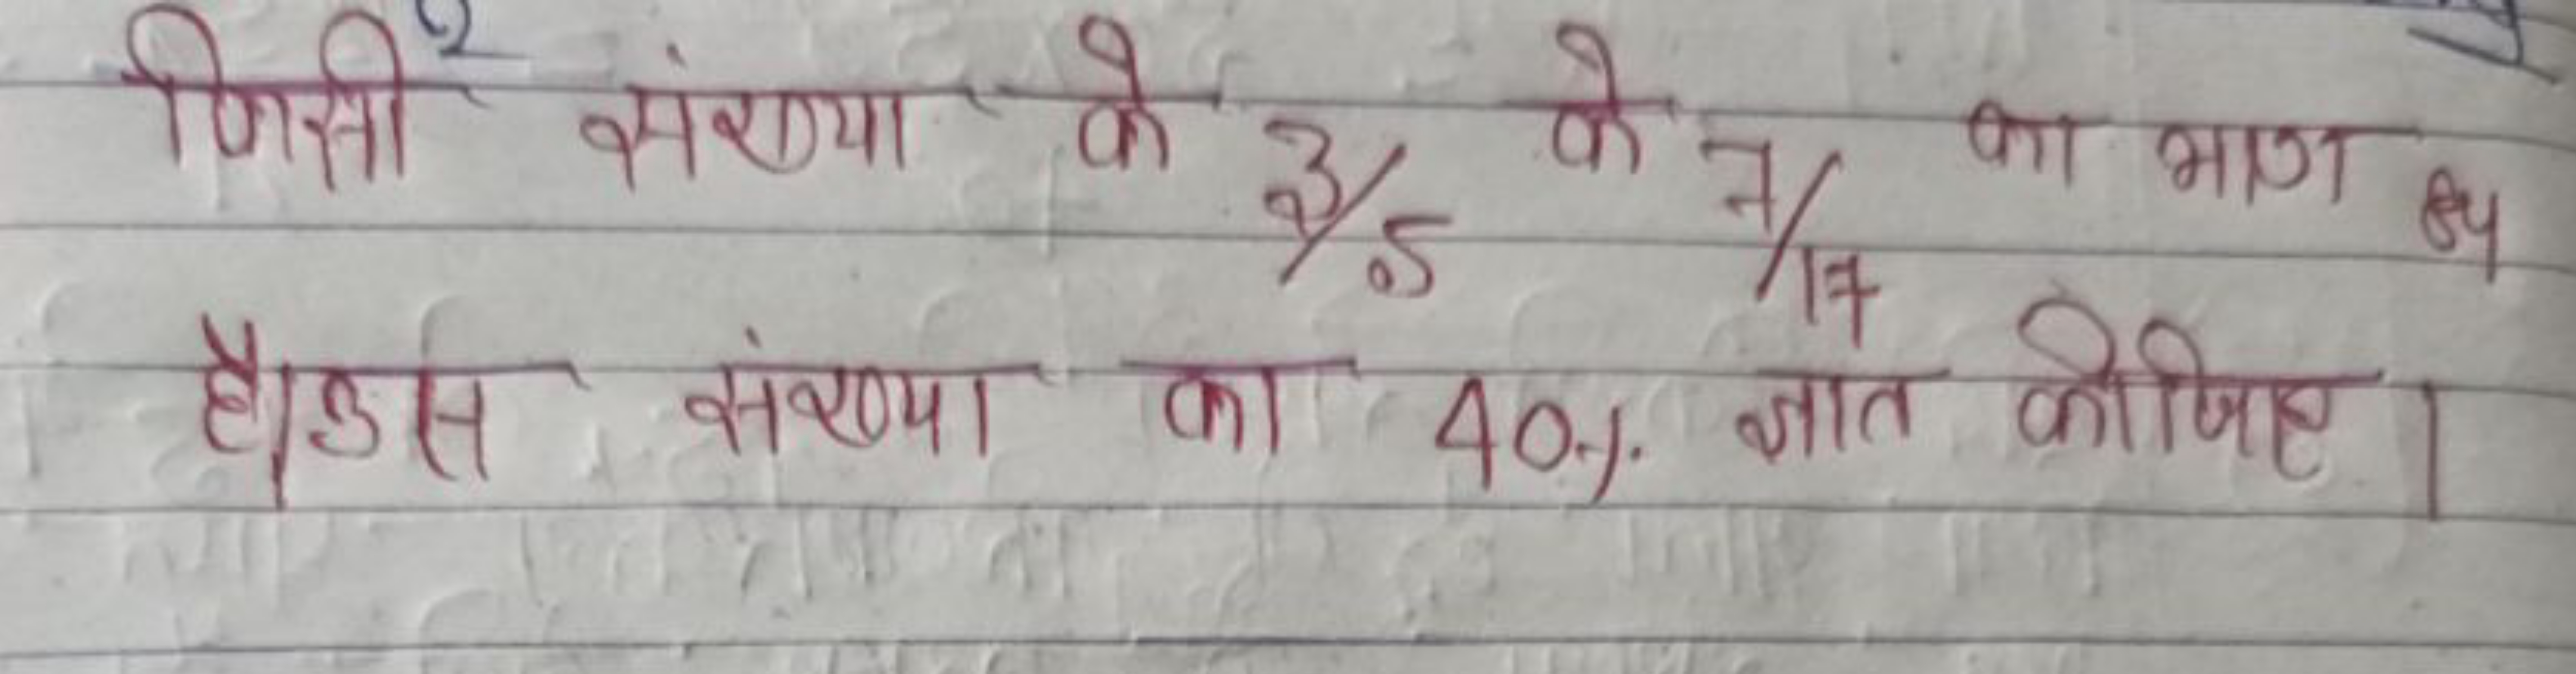 जिसी संख्या के 3/5 के 7/17 का भाग 84
है। उस संख्या का 40% ज्ञात कीजिए।